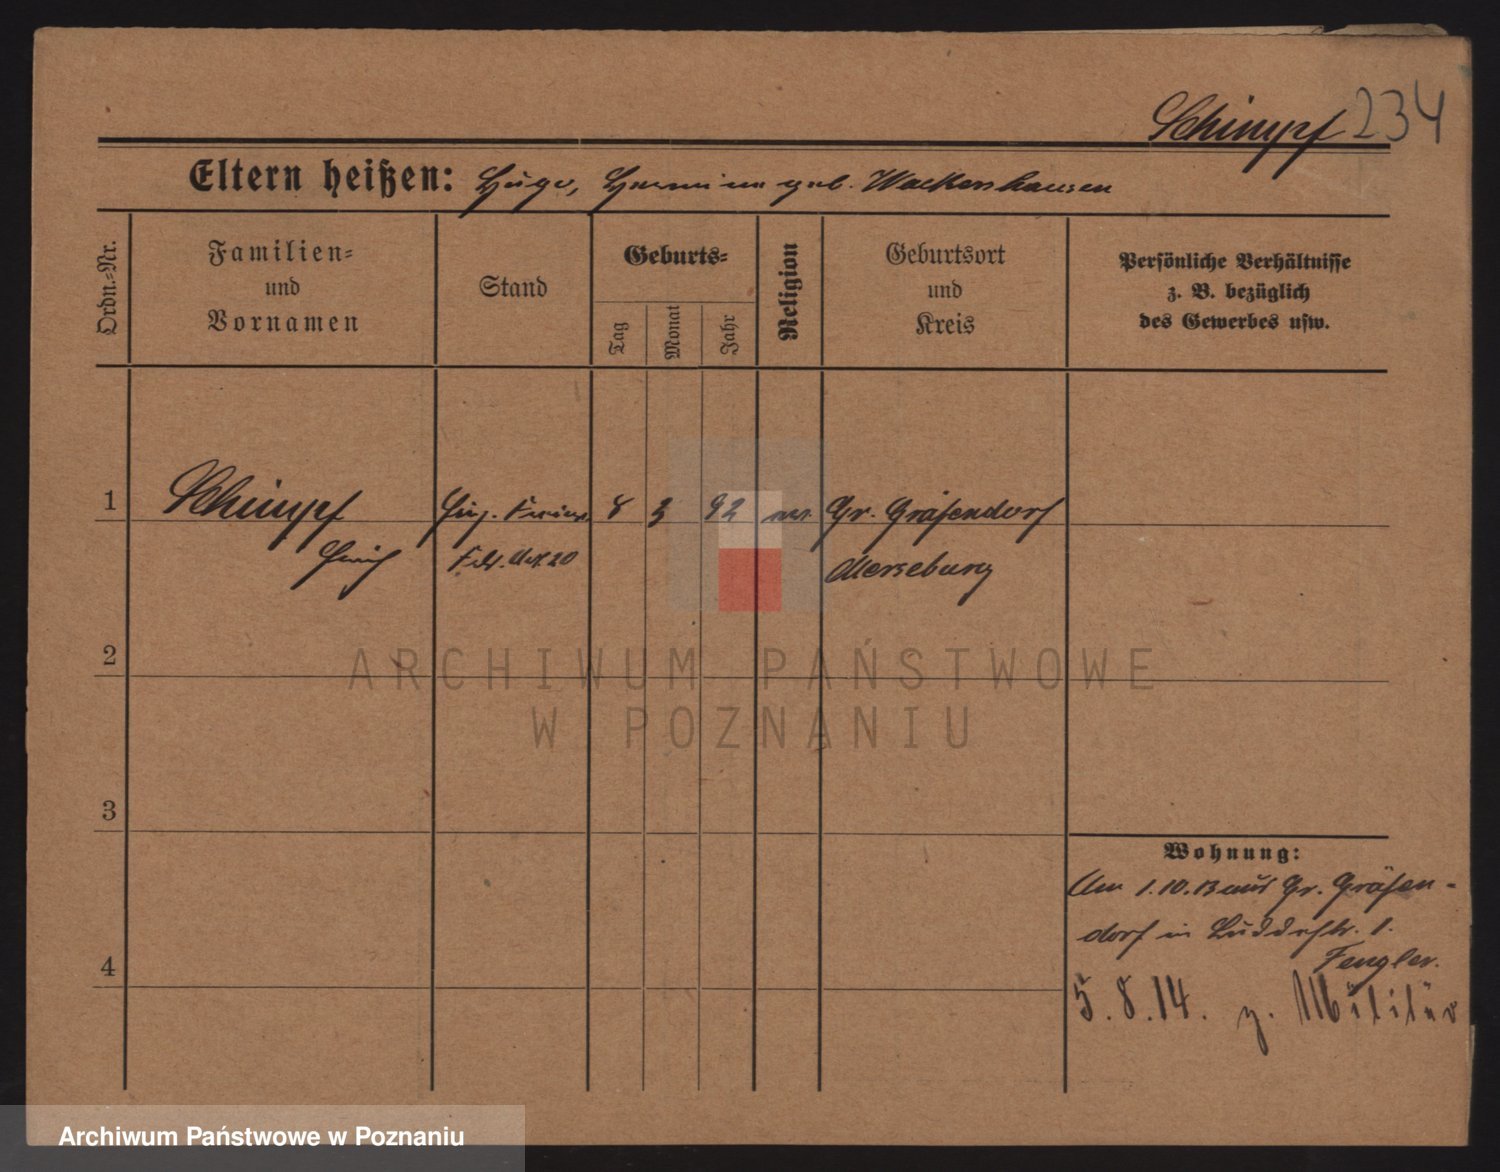 Schimpf 234
Eltern heißen: Hugo, Hermine geb. Wackershausen
Ordn.-Nr.
Familien-
und
Vornamen
Stand
Geburts-
Tag
Monat
Jahr
Religion
Geburtsort
und
Kreis
Persönliche Verhältnisse
z. B. bezüglich
des Gewerbes usw.
1 Schimpf 8 3 92 ev. Gr. Gräfendorf
Erich Feldart. 20 Merseburg
ARCHIWUM PAŃSTWOWE
W POZNANIU
2
3
4
Wohnung:
Am 1.10.13 aus Gr. Gräfen-
dorf in 1.
Fengler.
5.8.14. z. Militär
Archiwum Państwowe w Poznaniu